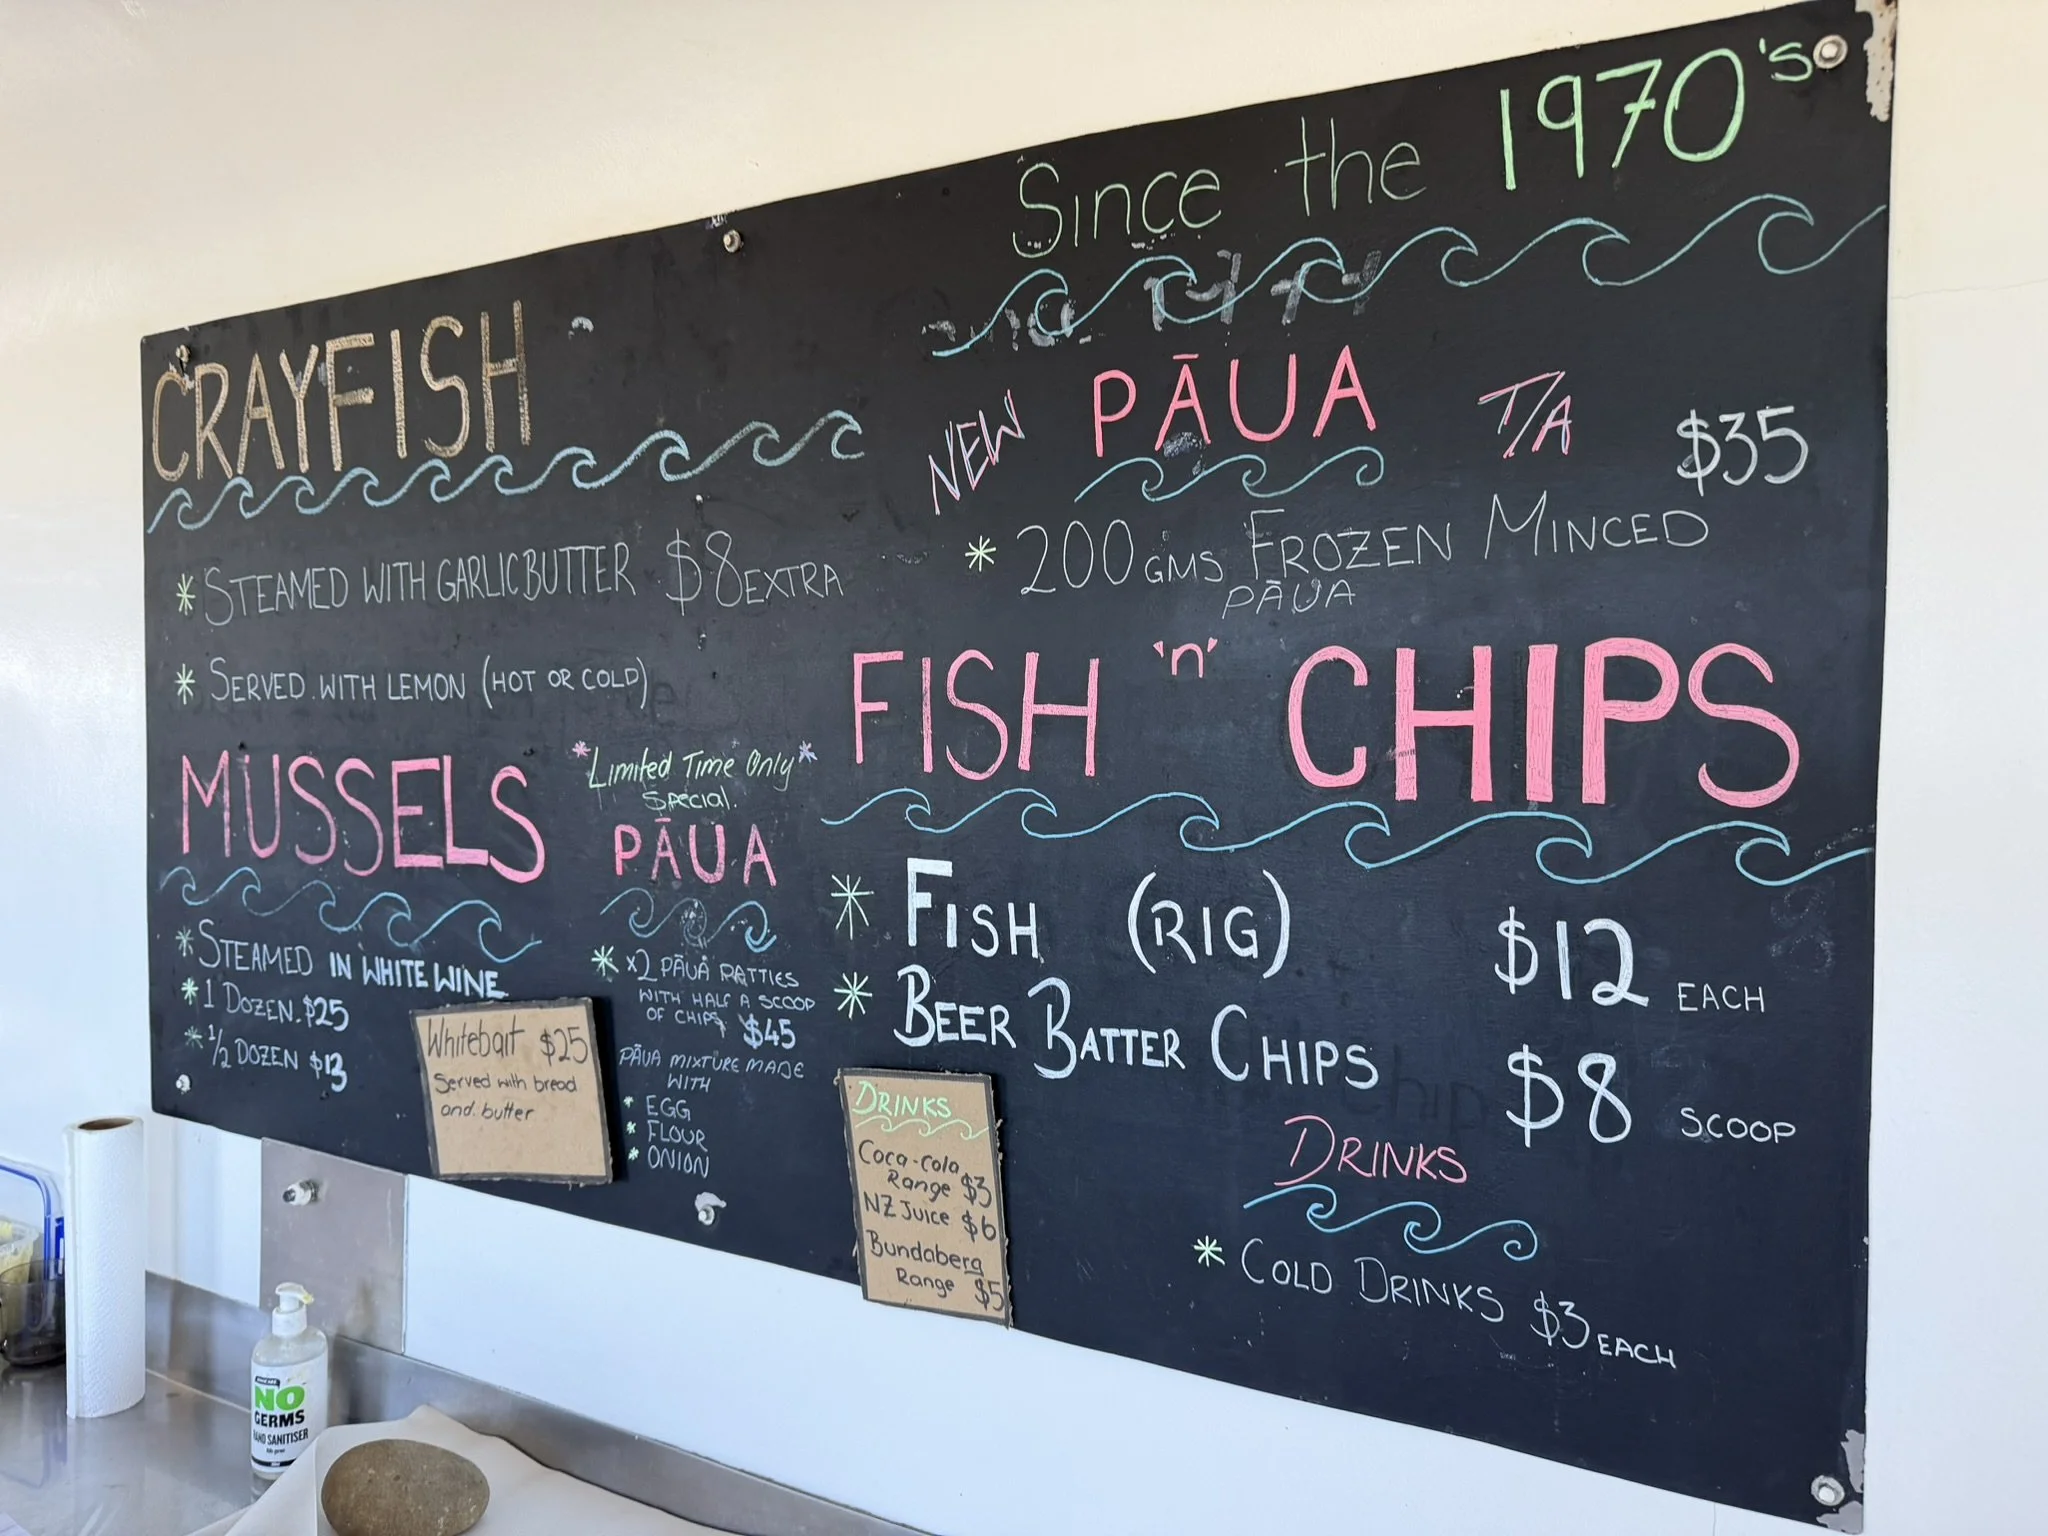 Since the 1970's
CRAYFISH
* STEAMED WITH GARLIC BUTTER $8 EXTRA
* SERVED WITH LEMON (HOT OR COLD)
NEW PĀUA T/A $35
* 200 GMS FROZEN MINCED
PĀUA
MUSSELS
* STEAMED IN WHITE WINE
* 1 DOZEN. $25
* 1/2 DOZEN $13
Whitebait $25
Served with bread
and butter
* Limited Time Only *
Special.
PĀUA
* x2 PĀUA PATTIES
WITH HALF A SCOOP
OF CHIPS $45
PĀUA MIXTURE MADE
WITH
* EGG
* FLOUR
* ONION
FISH 'n' CHIPS
* FISH (RIG) $12 EACH
* BEER BATTER CHIPS $8 SCOOP
DRINKS
Coca-Cola
Range $3
NZ Juice $6
Bundaberg
Range $5
DRINKS
* COLD DRINKS $3 EACH
NO
GERMS
HAND SANITISER